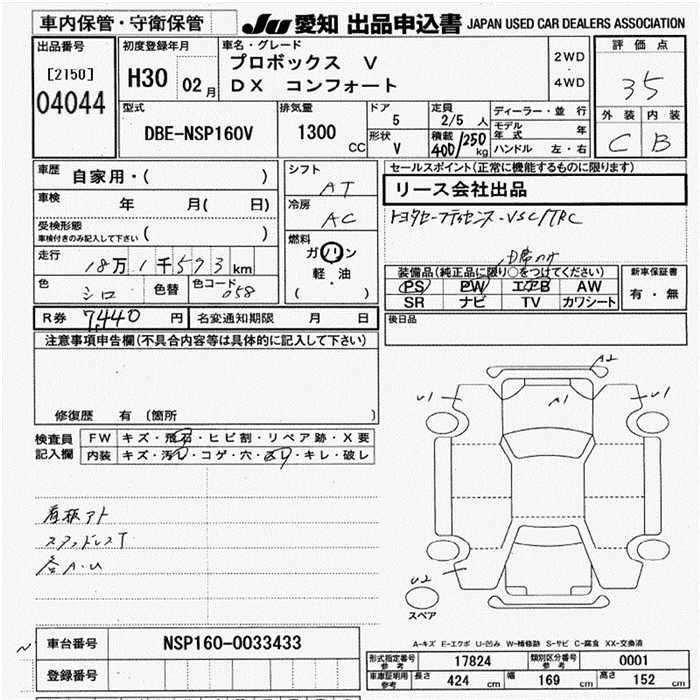 車内保管・守衛保管
JU 愛知 出品申込書 JAPAN USED CAR DEALERS ASSOCIATION
出品番号
[2150]
04044
初度登録年月
H30 02月
車名・グレード
プロボックス V
DX コンフォート
2WD
・
4WD
評価点
35
外装 内装
C B
型式
DBE-NSP160V
排気量
1300 CC
ドア
5
形状
V
定員
2/5 人
積載
400/250 kg
ディーラー・並行
モデル年式 年
ハンドル 左・右
車歴 自家用・( )
車検 年 月( 日)
受検形態
車検付きのみ記入して下さい ( )
走行 18万1千593km
色 シロ 色替 色コード 058
シフト
AT
冷房
AC
燃料
ガソリン
軽・油
( )
セールスポイント(正常に機能するものに限ります)
リース会社出品
トヨタセーフティセンス・VSC/TRC
装備品(純正品に限り○をつけてください)
PS PW エアB AW
SR ナビ TV カワシート
新車保証書
有・無
R券 7,440 円 名変通知期限 月 日
後日品
注意事項申告欄(不具合内容等は具体的に記入して下さい)
修復歴 有(箇所 )
検査員
記入欄
FW キズ・飛石・ヒビ割・リペア跡・X要
内装 キズ・汚レ・コゲ・穴・スレ・キレ・破レ
看板アト
スタッドレスT
各A・U
A2
U1
A1
U1
U2
スペア
A-キズ E-エクボ U-凹み W-補修跡 S-サビ C-腐食 XX-交換済
車台番号 NSP160-0033433
登録番号
形式指定番号
参考
17824
類別区分番号
参考
0001
車庫証明用
参考
長さ 424 cm 幅 169 cm 高さ 152 cm